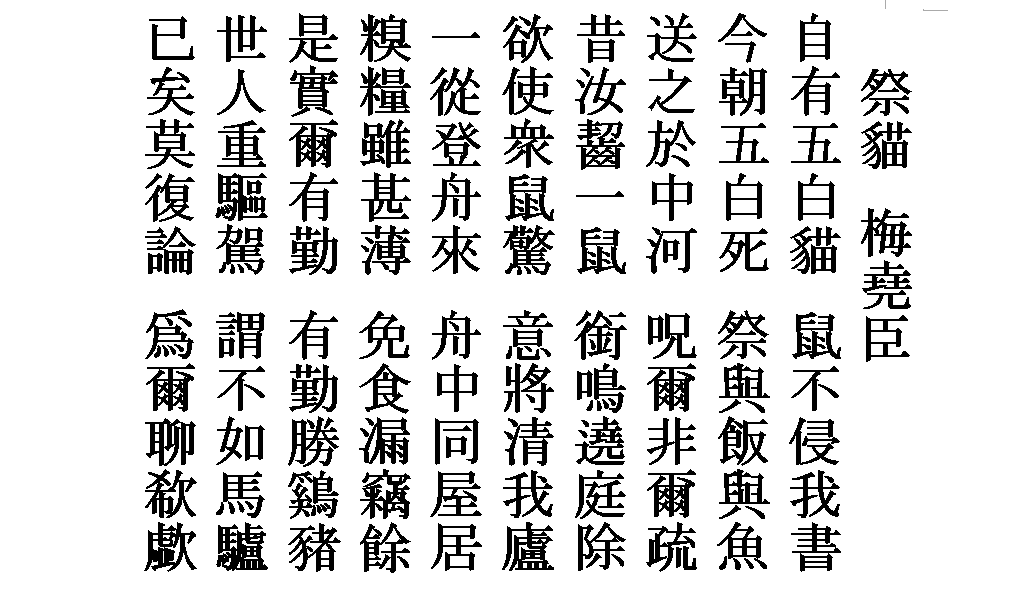 祭貓　梅堯臣
自有五白貓　鼠不侵我書
今朝五白死　祭與飯與魚
送之於中河　呪爾非爾疏
昔汝齧一鼠　銜鳴遶庭除
欲使衆鼠驚　意將清我廬
一從登舟來　舟中同屋居
糗糧雖甚薄　免食漏竊餘
是實爾有勤　有勤勝鷄豬
世人重驅駕　謂不如馬驢
已矣莫復論　爲爾聊欷歔